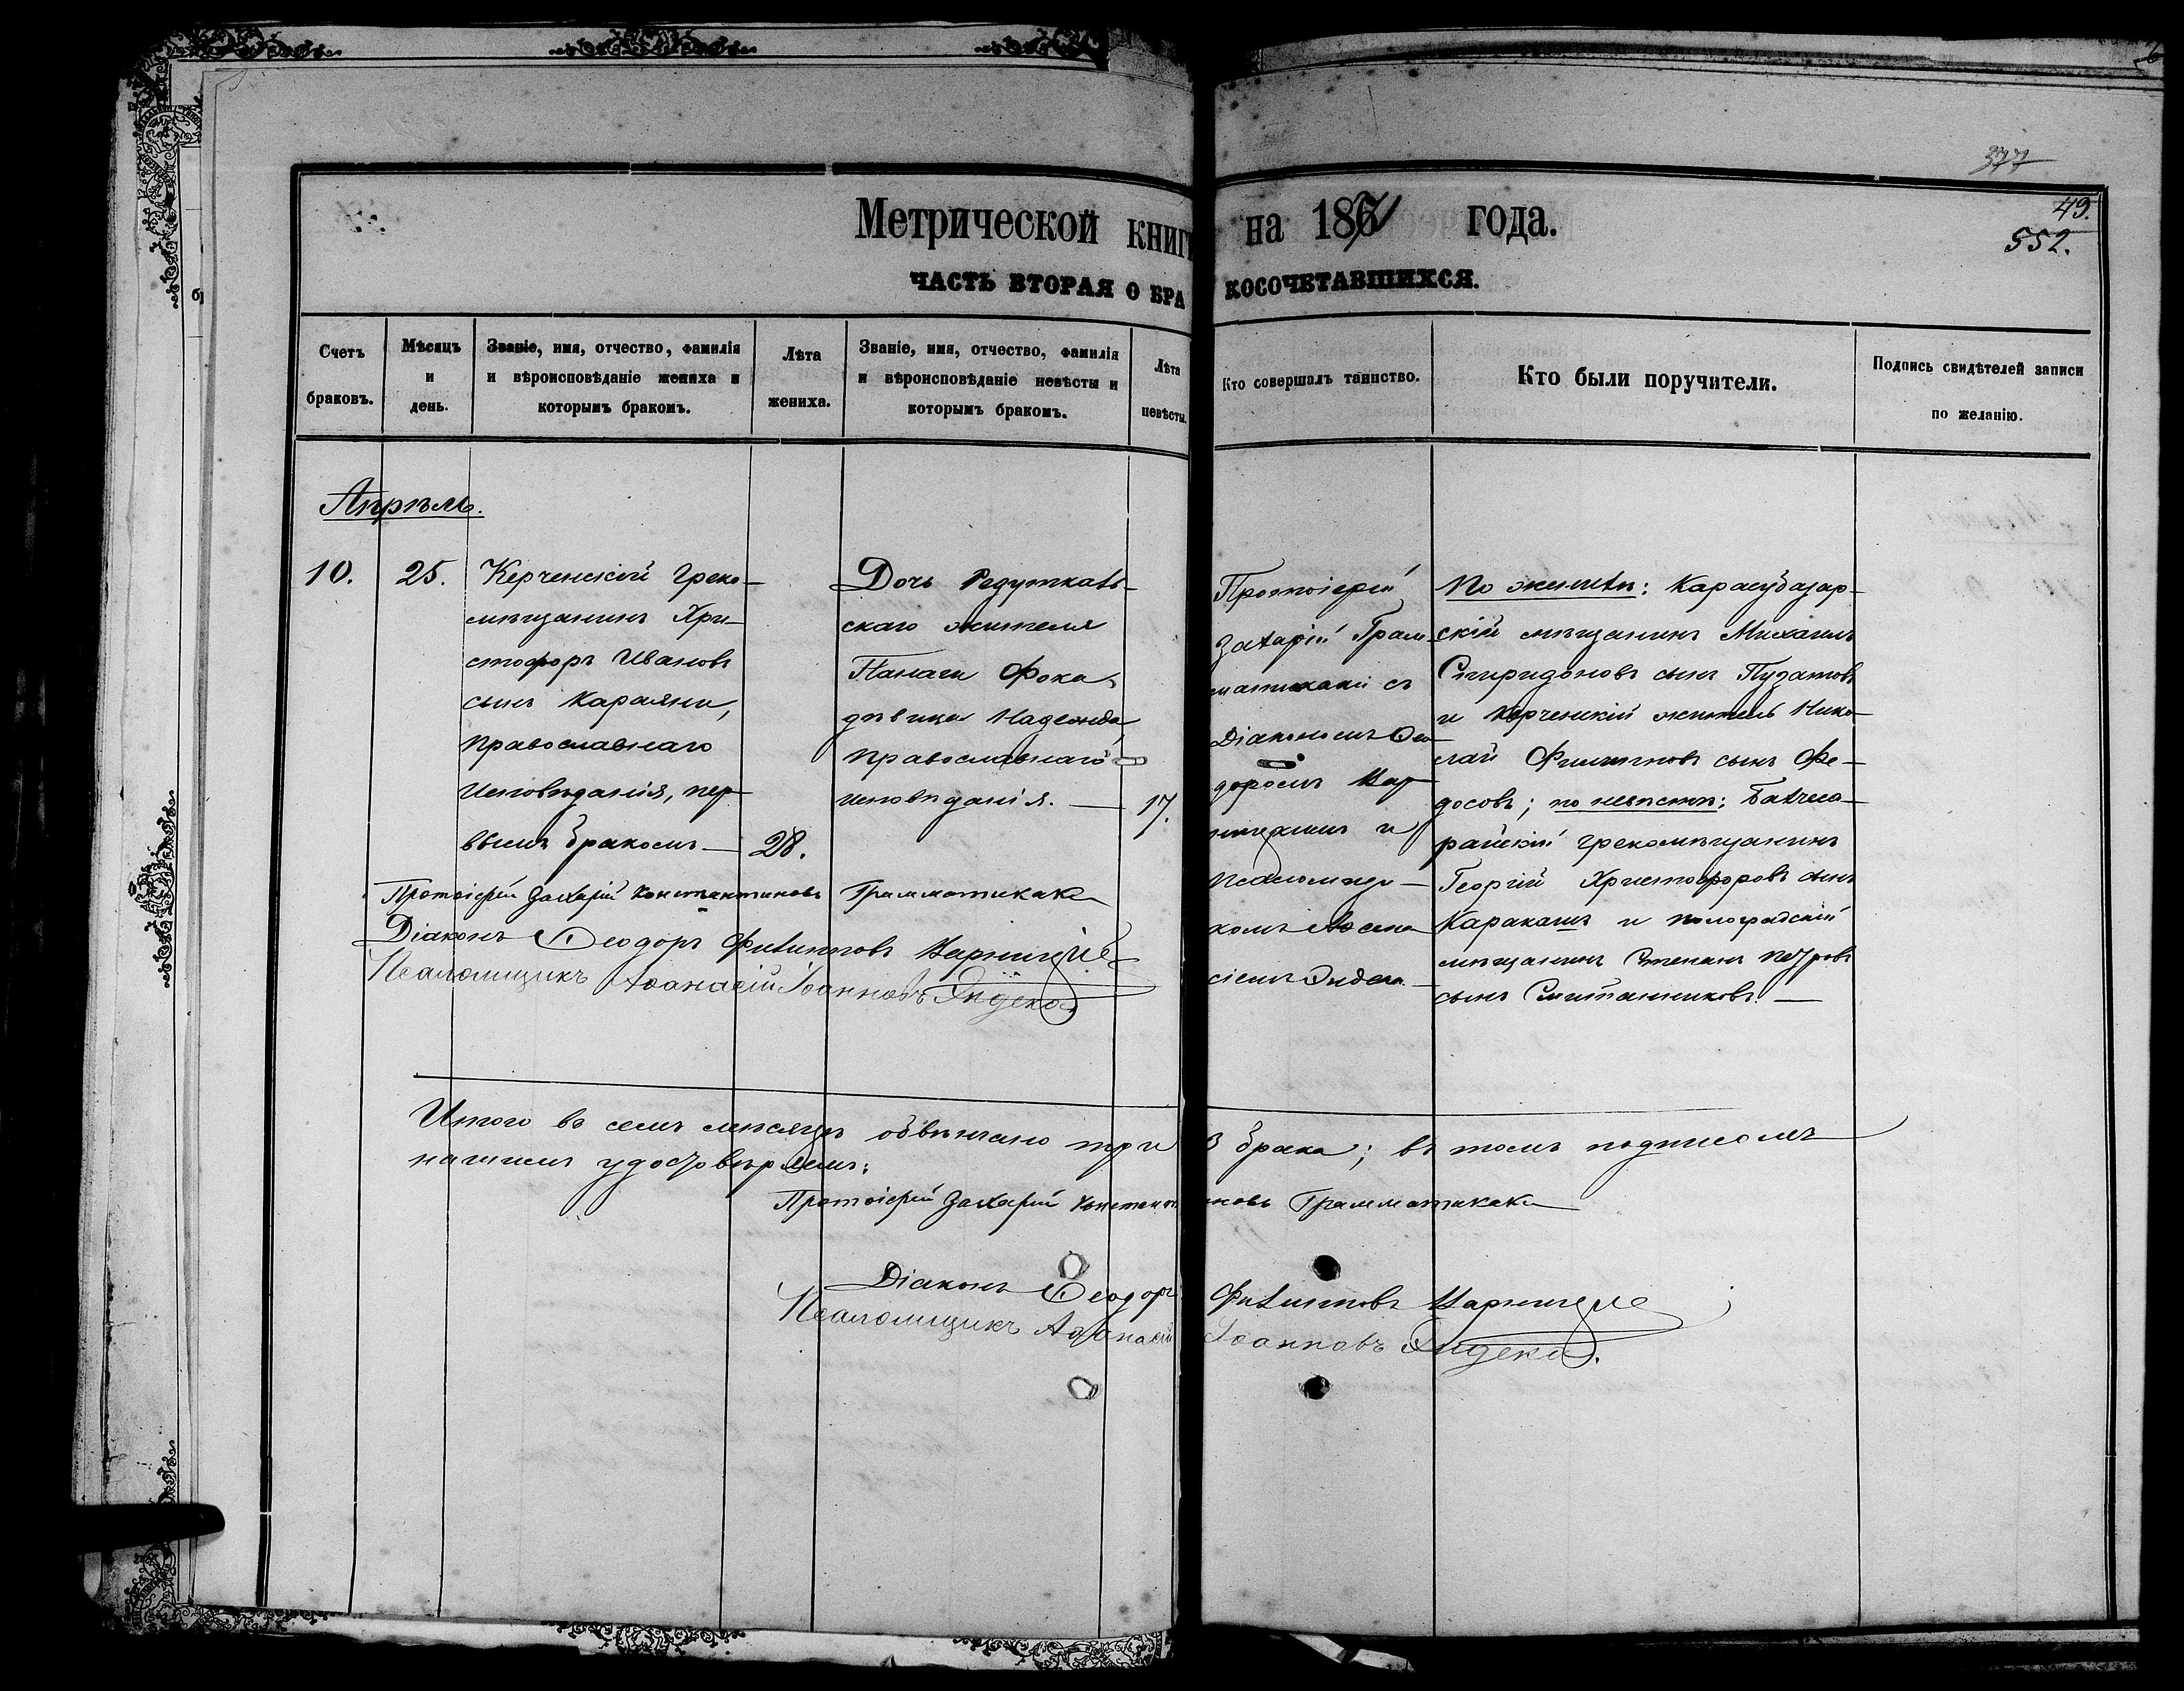 377
49.
552.
Метрической книг на 1871 года.
ЧАСТЬ ВТОРАЯ О БРА КОСОЧЕТАВШИХСЯ.
Счетъ браковъ.
Мѣсяцъ и день.
Званіе, имя, отчество, фамилія и вѣроисповѣданіе жениха и которымъ бракомъ.
Лѣта жениха.
Званіе, имя, отчество, фамилія и вѣроисповѣданіе невѣсты и которымъ бракомъ.
Лѣта невѣсты.
Кто совершалъ таинство.
Кто были поручители.
Подпись свидѣтелей записи по желанію.
Апрѣль.
10.
25.
Керченскій Греко-
мѣщанинъ Хри-
стофоръ Ивановъ
сынъ Караяни,
православнаго
исповѣданія, пер-
вымъ бракомъ —
28.
Дочь Редуткаль-
скаго жителя
Панаги Фока,
дѣвица Надежда,
православнаго
исповѣданія. —
17.
Протоіерей
Захарій Грам-
матикаки съ
Діакономъ Ѳео-
доромъ
и
Псаломщи-
комъ Аѳана-
сіемъ Эндека
По женихѣ: Карасубазар-
скій мѣщанинъ Михаилъ
Спиридоновъ сынъ Пудатовъ
и Керченскій житель Нико-
лай Филипповъ сынъ Фе-
досовъ; по невѣстѣ: Бахчеса-
райскій грекомѣщанинъ
Георгій Христофоровъ сынъ
Каракашъ и
мѣщанинъ Степанъ Петровъ
сынъ —
Протоіерей Захарій Константиновъ Грамматикаки
Діаконъ Ѳеодоръ Филипповъ
Псаломщикъ Аѳанасій Іоанновъ Эндека
Итого въ семъ мѣсяцѣ обвѣнчано три 3 брака; въ томъ подписомъ
нашимъ удостовѣряемъ:
Протоіерей Захарій Константиновъ Грамматикаки
Діаконъ Ѳеодоръ Филипповъ
Псаломщикъ Аѳанасій Іоанновъ Эндека.